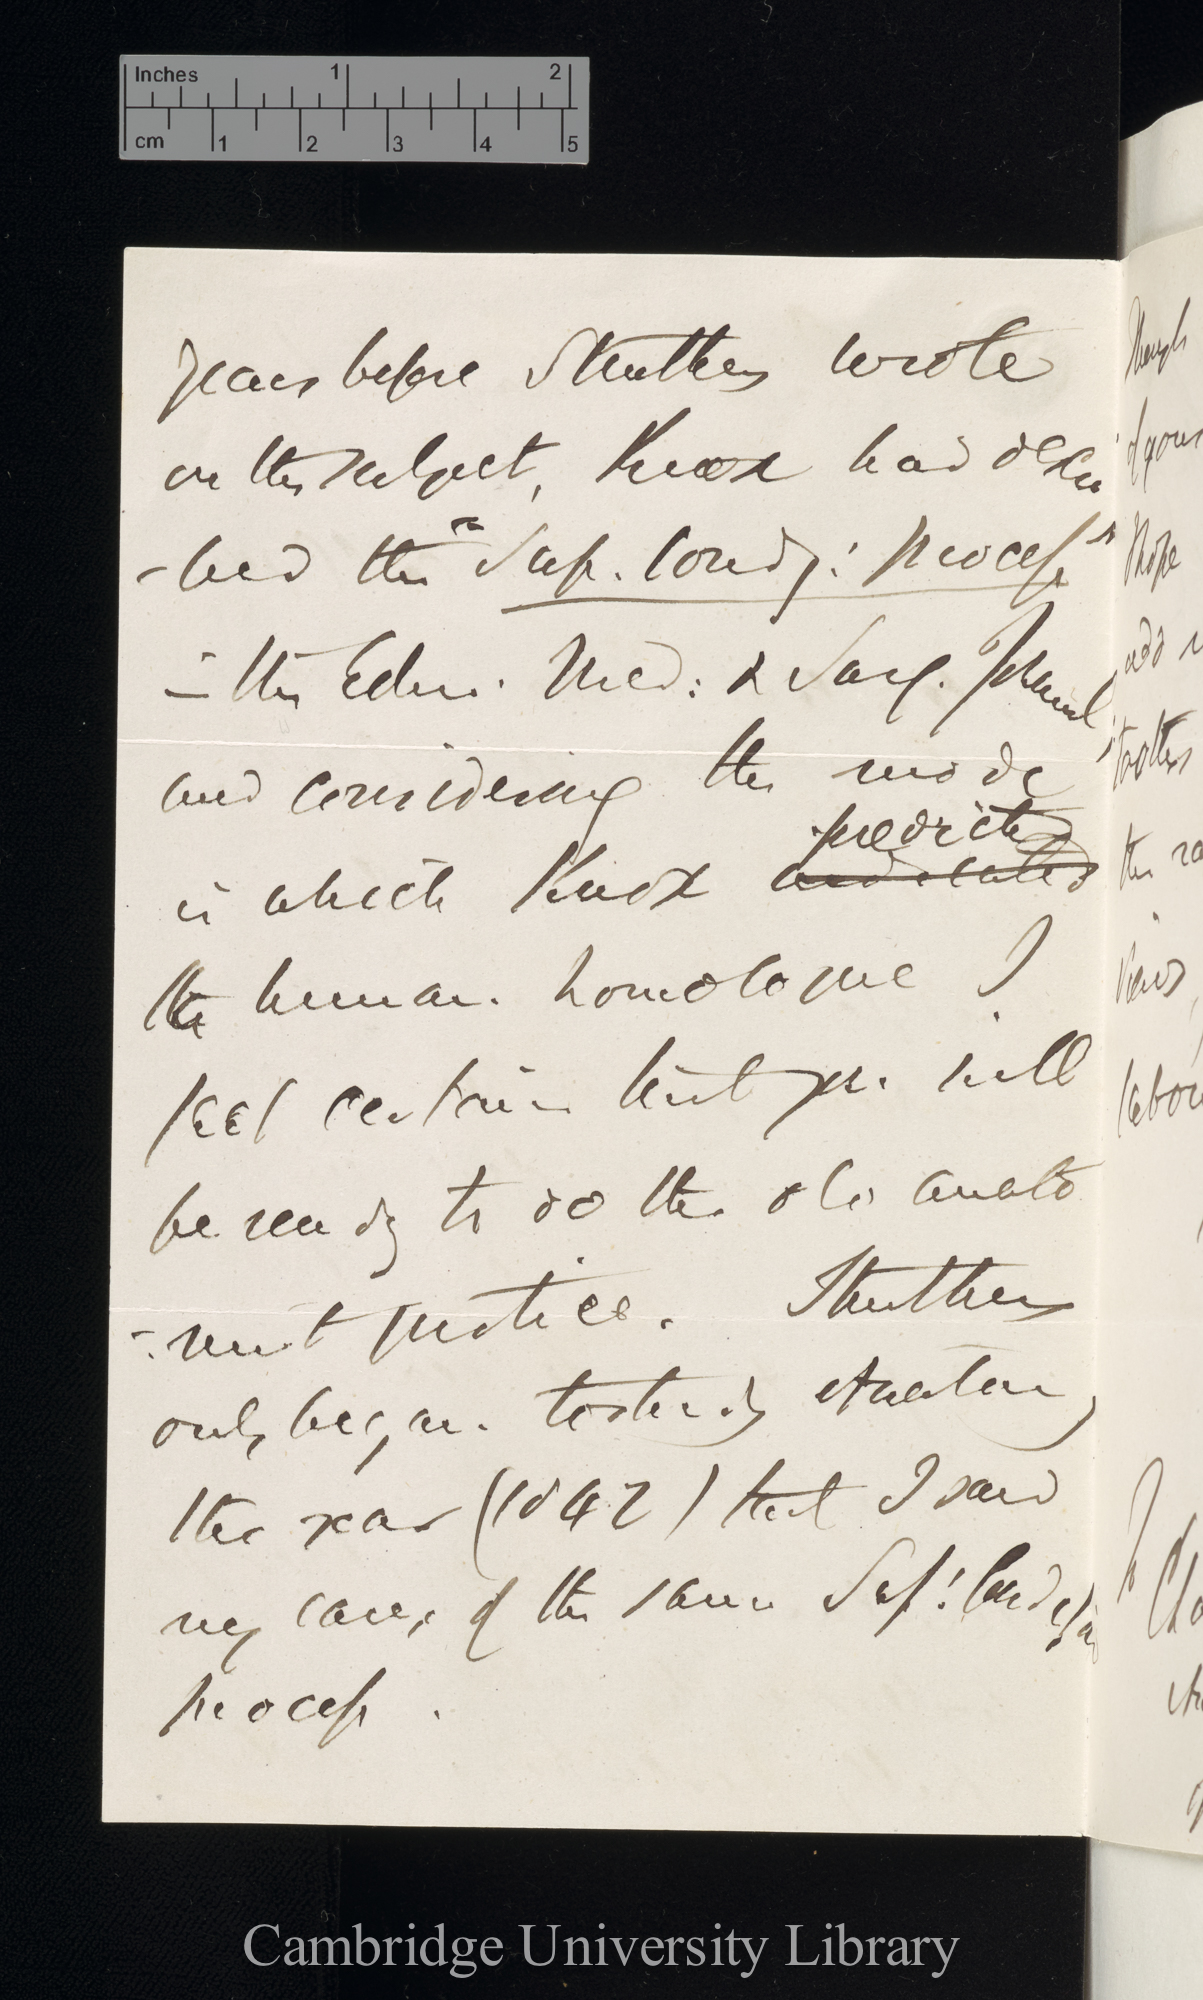 Inches 1 2
cm 1 2 3 4 5
years before Struthers wrote
on the subject, Knox had descri
-bed the "Sup. Condy: process"
in the Edin. Med: & Surg. Journal,
and considering the mode
predicted
in which Knox indicated
the human homologue I
feel certain that you will
be ready to do the old anato
-mist justice. Struthers
only began to study Anatomy
the year (1842) that I saw
my case, of the same Sup: Condyloid
process.
though
of your
I hope
add
to others
the
views,
labour
To
Cambridge University Library